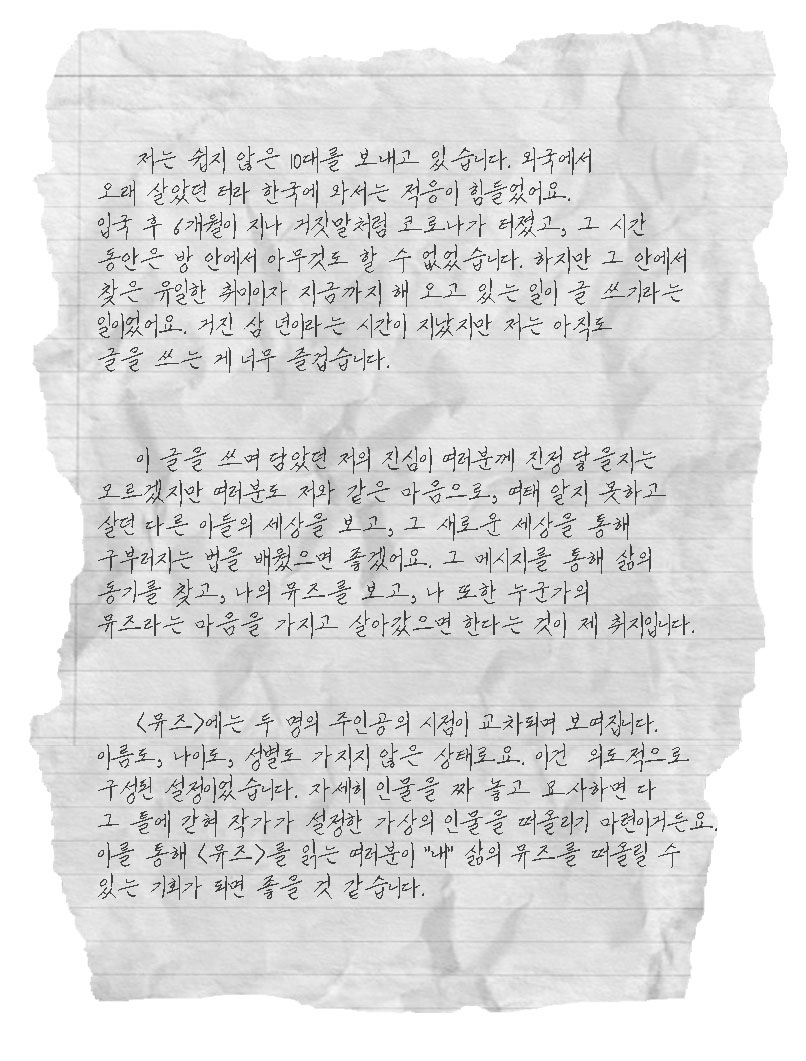 저는 쉽지 않은 10대를 보내고 있습니다. 외국에서
오래 살았던 터라 한국에 와서는 적응이 힘들었어요.
입국 후 6개월이 지나 거짓말처럼 코로나가 터졌고, 그 시간
동안은 방 안에서 아무것도 할 수 없었습니다. 하지만 그 안에서
찾은 유일한 취미이자 지금까지 해 오고 있는 일이 글 쓰기라는
일이었어요. 거진 삼 년이라는 시간이 지났지만 저는 아직도
글을 쓰는 게 너무 즐겁습니다.
이 글을 쓰며 담았던 저의 진심이 여러분께 진정 닿을지는
모르겠지만 여러분도 저와 같은 마음으로, 여태 알지 못하고
살던 다른 이들의 세상을 보고, 그 새로운 세상을 통해
구부러지는 법을 배웠으면 좋겠어요. 그 메시지를 통해 삶의
동기를 찾고, 나의 뮤즈를 보고, 나 또한 누군가의
뮤즈라는 마음을 가지고 살아갔으면 한다는 것이 제 취지입니다.
<뮤즈>에는 두 명의 주인공의 시점이 교차되며 보여집니다.
이름도, 나이도, 성별도 가지지 않은 상태로요. 이건 의도적으로
구성된 설정이었습니다. 자세히 인물을 짜 놓고 묘사하면 다
그 틀에 갇혀 작가가 설정한 가상의 인물을 떠올리기 마련이거든요.
이를 통해 <뮤즈>를 읽는 여러분이 "내" 삶의 뮤즈를 떠올릴 수
있는 기회가 되면 좋을 것 같습니다.